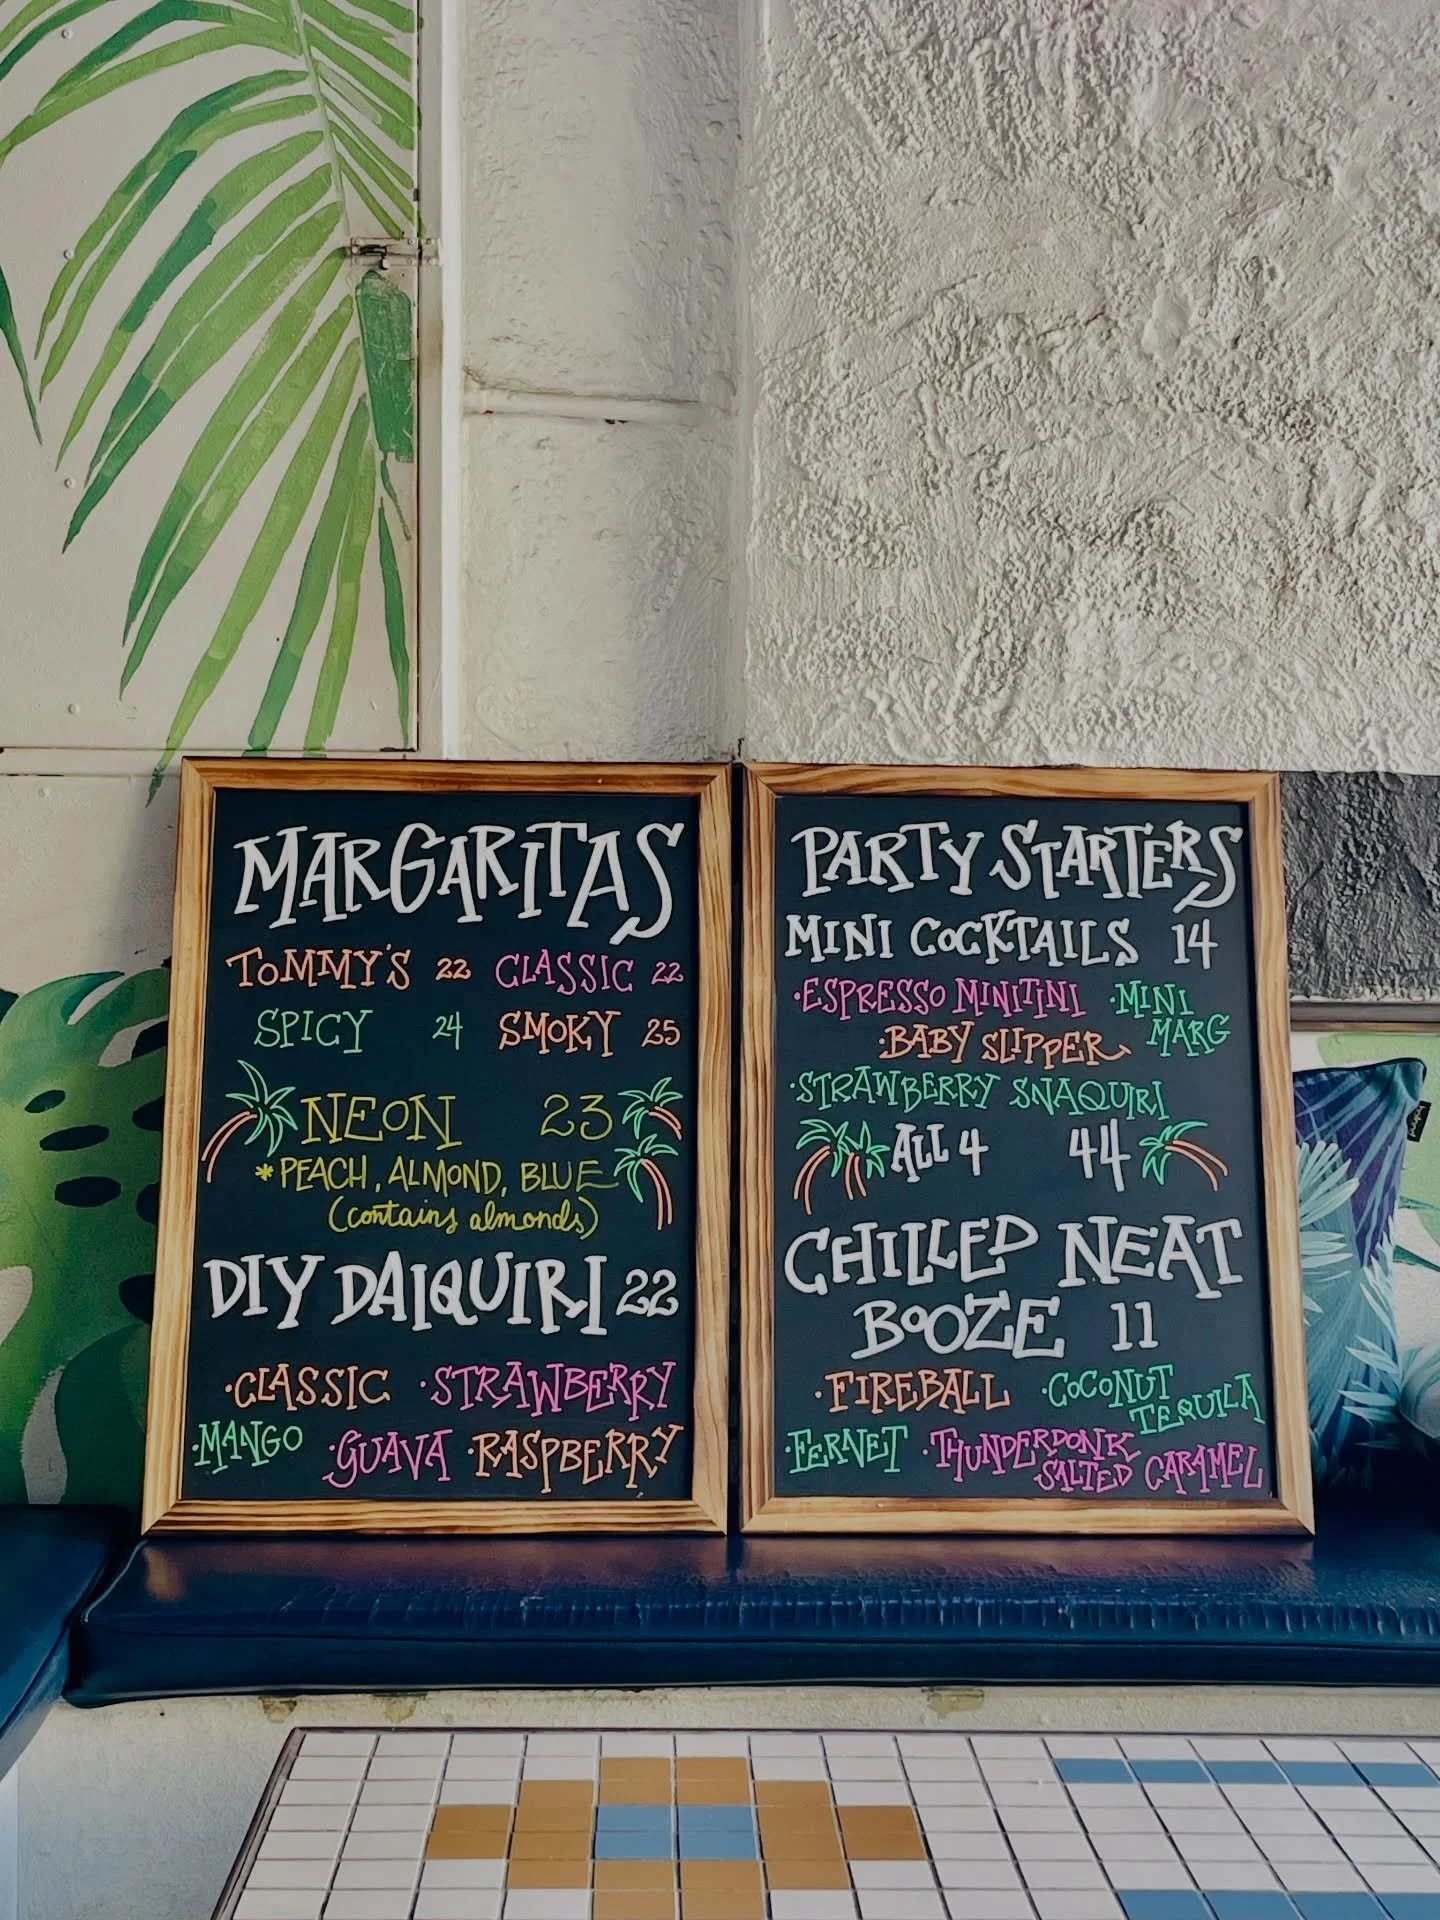 MARGARITAS
TOMMY'S 22 CLASSIC 22
SPICY 24 SMOKY 25
NEON 23
*PEACH, ALMOND, BLUE
(contains almonds)
DIY DAIQUIRI 22
·CLASSIC ·STRAWBERRY
·MANGO ·GUAVA ·RASPBERRY
PARTY STARTERS
MINI COCKTAILS 14
·ESPRESSO MINITINI ·MINI MARG
·BABY SLIPPER
·STRAWBERRY SNAQUIRI
ALL 4 44
CHILLED NEAT
BOOZE 11
·FIREBALL ·COCONUT TEQUILA
·FERNET ·THUNDERDONK
SALTED CARAMEL